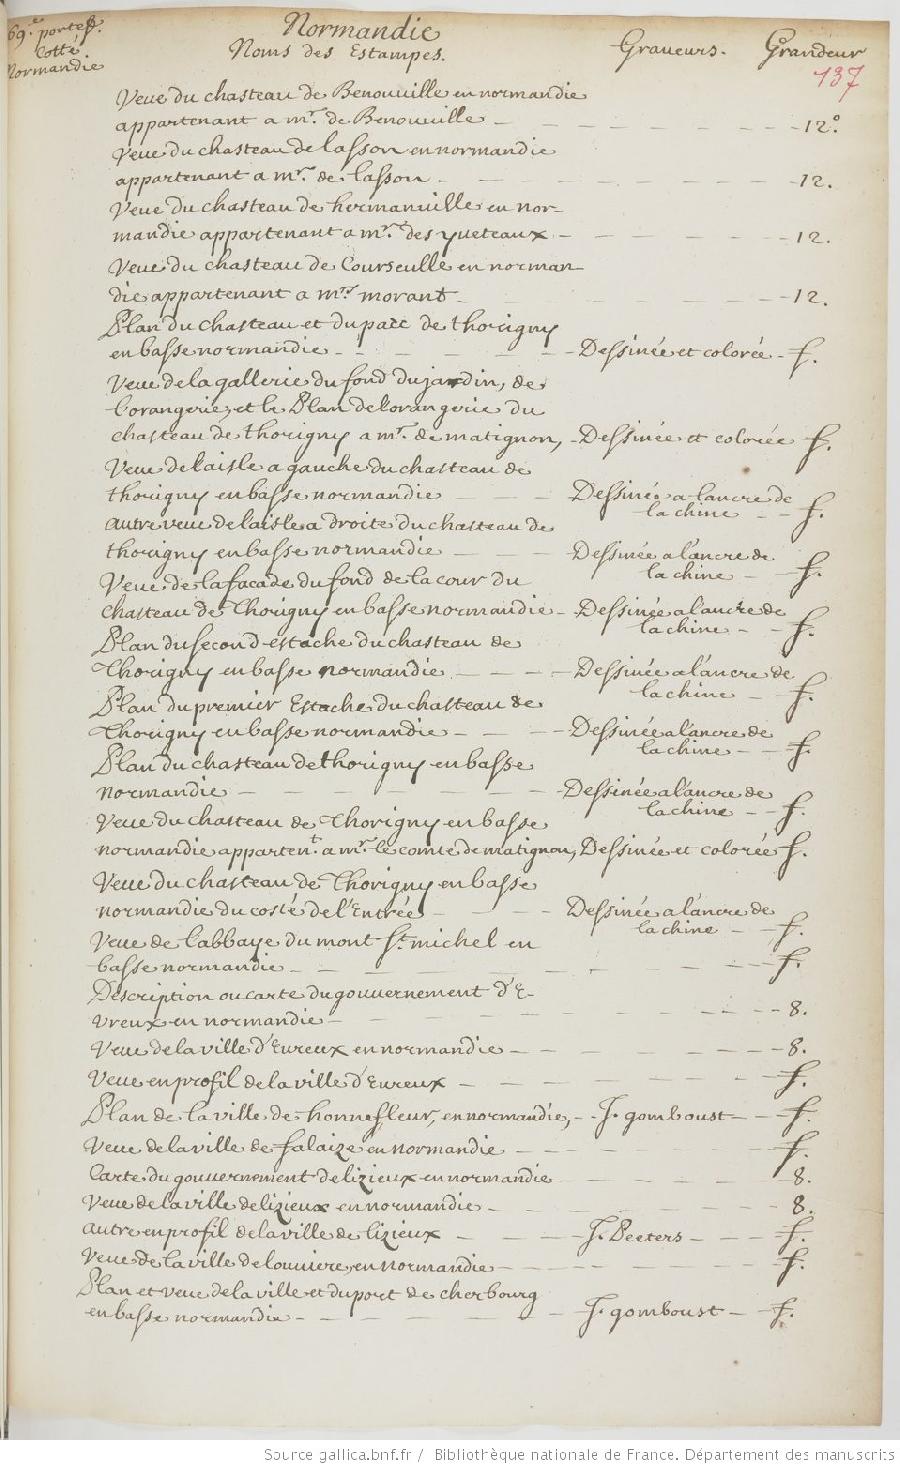 69.e portef.
Cotté.
Normandie
Normandie
Noms des Estampes. Graveurs. Grandeur
137
Veue du chasteau de Benouville en normandie
appartenant a mr. de Benouville - 12°.
Veue du chasteau de lasson en normandie
appartenant a mr. de lasson - 12.
Veue du chasteau de hermanville en nor-
mandie appartenant a mr. des yueteaux - 12.
Veue du chasteau de Courseulle en norman-
die appartenant a mr. morant - 12.
Plan du chasteau et du parc de thorigny
en basse normandie - Dessinée et colorée - f.
Veue de la gallerie du fond du jardin, de
l'orangerie, et le Plan de l'orangerie du
chasteau de thorigny a mr. de matignon, - Dessinée et colorée f.
Veue de l'aisle a gauche du chasteau de
thorigny en basse normandie - Dessinée a l'ancre de
la chine - f.
autre veue de l'aisle a droite du chasteau de
thorigny en basse normandie - Dessinée a l'ancre de
la chine - f.
Veue de la facade du fond de la cour du
chasteau de Thorigny en basse normandie - Dessinée a l'ancre de
la chine - f.
Plan du second estache du chasteau de
Thorigny en basse normandie - Dessinée a l'ancre de
la chine - f.
Plan du premier Estache du chasteau de
Thorigny en basse normandie - Dessinée a l'ancre de
la chine - f.
Plan du chasteau de thorigny en basse
normandie - Dessinée a l'ancre de
la chine - f.
Veue du chasteau de Thorigny en basse
normandie apparten.t a mr. le comte de matignon, Dessinée et colorée f.
Veue du chasteau de Thorigny en basse
normandie du costé de l'Entrée - Dessinée a l'ancre de
la chine - f.
Veue de l'abbaye du mont St. michel en
basse normandie - f.
Description ou carte du gouvernement d'E-
vreux en normandie - 8.
Veue de la ville d'Evreux en normandie - 8.
Veue en profil de la ville d'Evreux - f.
Plan de la ville de honnefleur, en normandie, - J. gomboust - f.
Veue de la ville de falaize en normandie - f.
Carte du gouvernement de lizieux en normandie - 8.
Veue de la ville de lizieux en normandie - 8.
autre en profil de la ville de lizieux - J. Peeters - f.
Veue de la ville de louviere, en normandie - f.
Plan et veue de la ville et du port de cherbourg
en basse normandie - J. gomboust - f.
Source gallica.bnf.fr / Bibliothèque nationale de France. Département des manuscrits